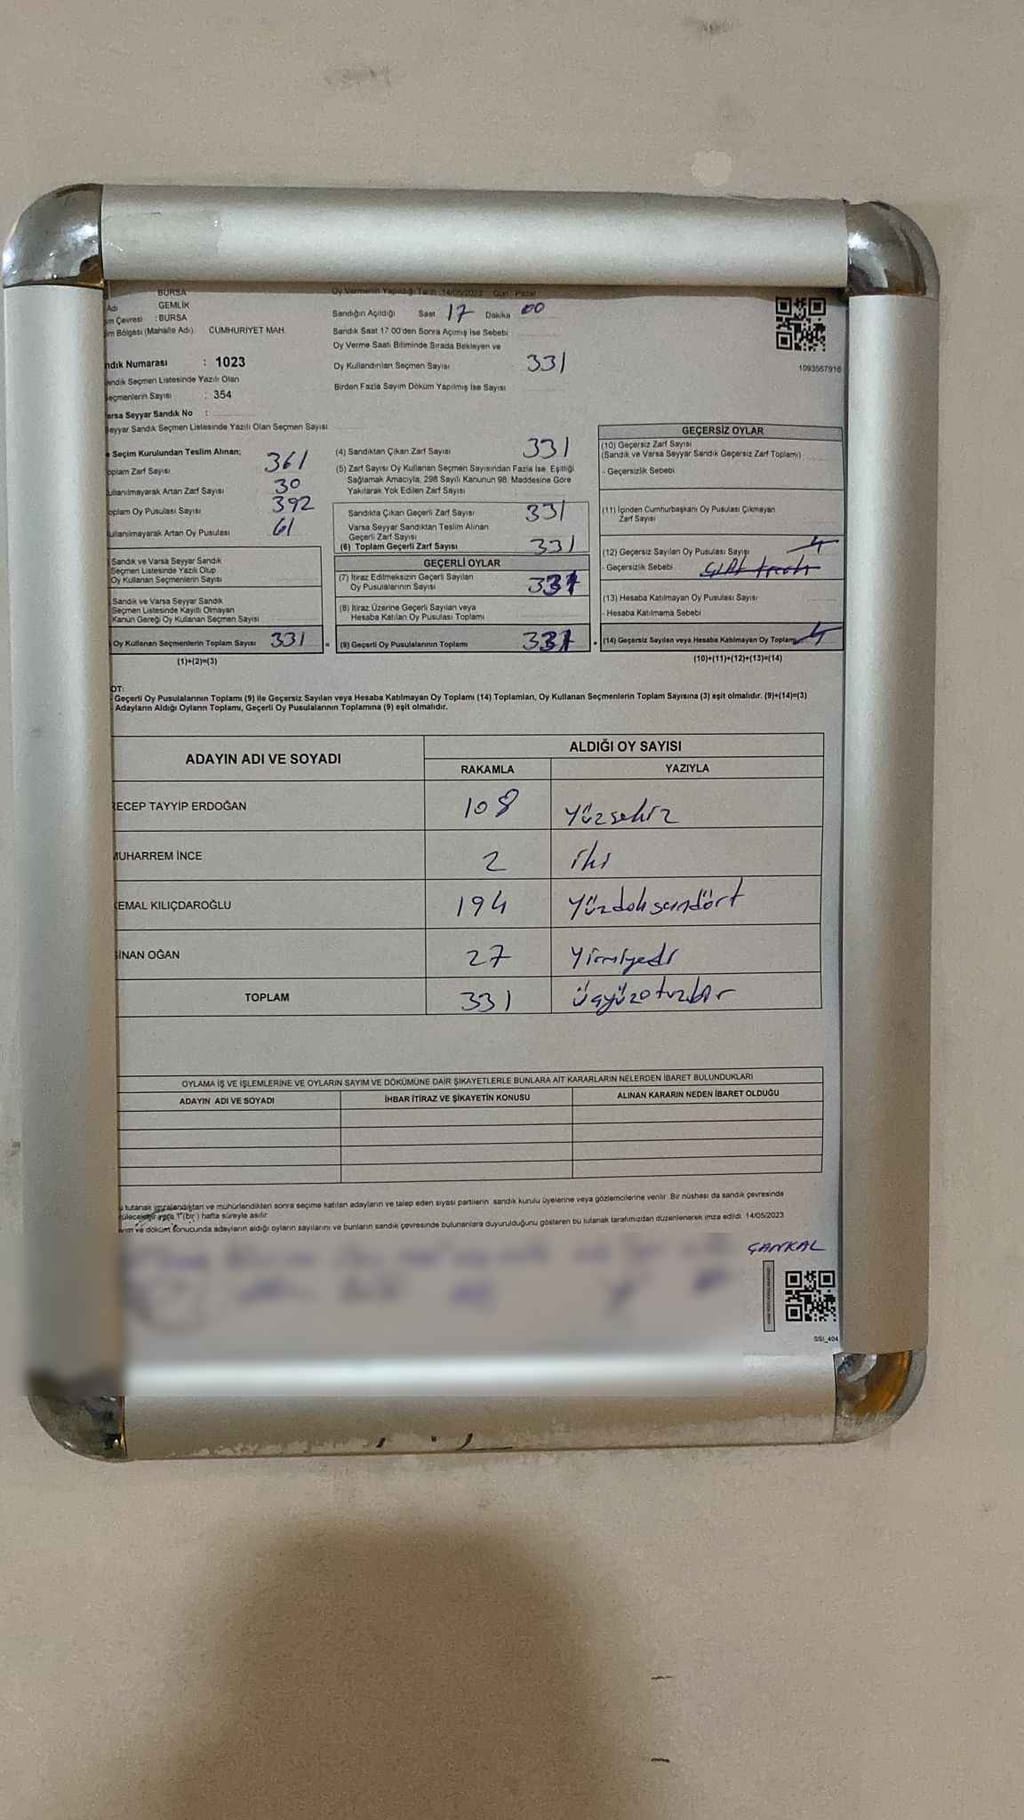 BURSA
Oy Vermenin Yapıldığı Tarih :14/05/2023 Gün: Pazar
Adı GEMLİK
m Çevresi : BURSA
Sandığın Açıldığı Saat 17 Dakika 00
m Bölgesi (Mahalle Adı) CUMHURİYET MAH.
Sandık Saat 17:00'den Sonra Açımış ise Sebebi
Oy Verme Saati Bitiminde Sırada Bekleyen ve
Oy Kullandırılan Seçmen Sayısı 331
1093567916
ndık Numarası : 1023
andık Seçmen Listesinde Yazılı Olan
eçmenlerin Sayısı : 354
Birden Fazla Sayım Döküm Yapılmış İse Sayısı
arsa Seyyar Sandık No :
eyyar Sandık Seçmen Listesinde Yazılı Olan Seçmen Sayısı
e Seçim Kurulundan Teslim Alınan;
oplam Zarf Sayısı 361
ullanılmayarak Artan Zarf Sayısı 30
oplam Oy Pusulası Sayısı 392
ullanılmayarak Artan Oy Pusulası 61
Sandık ve Varsa Seyyar Sandık
Seçmen Listesinde Yazılı Olup
Oy Kullanan Seçmenlerin Sayısı
Sandık ve Varsa Seyyar Sandık
Seçmen Listesinde Kayıtlı Olmayan
Kanun Gereği Oy Kullanan Seçmen Sayısı
Oy Kullanan Seçmenlerin Toplam Sayısı 331
(1)+(2)=(3)
(4) Sandıktan Çıkan Zarf Sayısı 331
(5) Zarf Sayısı Oy Kullanan Seçmen Sayısından Fazla İse, Eşitliği
Sağlamak Amacıyla, 298 Sayılı Kanunun 98. Maddesine Göre
Yakılarak Yok Edilen Zarf Sayısı
Sandıkta Çıkan Geçerli Zarf Sayısı 331
Varsa Seyyar Sandıktan Teslim Alınan
Geçerli Zarf Sayısı
(6) Toplam Geçerli Zarf Sayısı 331
GEÇERLİ OYLAR
(7) İtiraz Edilmeksizin Geçerli Sayılan
Oy Pusulalarının Sayısı 331
(8) İtiraz Üzerine Geçerli Sayılan veya
Hesaba Katılan Oy Pusulası Toplamı
(9) Geçerli Oy Pusulalarının Toplamı 331
GEÇERSİZ OYLAR
(10) Geçersiz Zarf Sayısı
(Sandık ve Varsa Seyyar Sandık Geçersiz Zarf Toplamı)
- Geçersizlik Sebebi
(11) İçinden Cumhurbaşkanı Oy Pusulası Çıkmayan
Zarf Sayısı
(12) Geçersiz Sayılan Oy Pusulası Sayısı
- Geçersizlik Sebebi
(13) Hesaba Katılmayan Oy Pusulası Sayısı
- Hesaba Katılmama Sebebi
(14) Geçersiz Sayılan veya Hesaba Katılmayan Oy Toplamı
(10)+(11)+(12)+(13)=(14)
OT:
Geçerli Oy Pusulalarının Toplamı (9) ile Geçersiz Sayılan veya Hesaba Katılmayan Oy Toplamı (14) Toplamları, Oy Kullanan Seçmenlerin Toplam Sayısına (3) eşit olmalıdır. (9)+(14)=(3)
Adayların Aldığı Oyların Toplamı, Geçerli Oy Pusulalarının Toplamına (9) eşit olmalıdır.
ADAYIN ADI VE SOYADI ALDIĞI OY SAYISI
RAKAMLA YAZIYLA
RECEP TAYYİP ERDOĞAN 108 Yüzsekiz
MUHARREM İNCE 2 iki
KEMAL KILIÇDAROĞLU 194 Yüzdoksandört
SİNAN OĞAN 27 Yirmiyedi
TOPLAM 331 üçyüzotuzbir
OYLAMA İŞ VE İŞLEMLERİNE VE OYLARIN SAYIM VE DÖKÜMÜNE DAİR ŞİKAYETLERLE BUNLARA AİT KARARLARIN NELERDEN İBARET BULUNDUKLARI
ADAYIN ADI VE SOYADI İHBAR İTİRAZ VE ŞİKAYETİN KONUSU ALINAN KARARIN NEDEN İBARET OLDUĞU
u tutanak imzalandıktan ve mühürlendikten sonra seçime katılan adayların ve talep eden siyasi partilerin sandık kurulu üyelerine veya gözlemcilerine verilir. Bir nüshası da sandık çevresinde
1 (bir) hafta süreyle asılır.
yım ve döküm sonucunda adayların aldığı oyların sayılarını ve bunların sandık çevresinde bulunanlara duyurulduğunu gösteren bu tutanak tarafımızdan düzenlenerek imza edildi. 14/05/2023
ÇANKAL
SSI_404